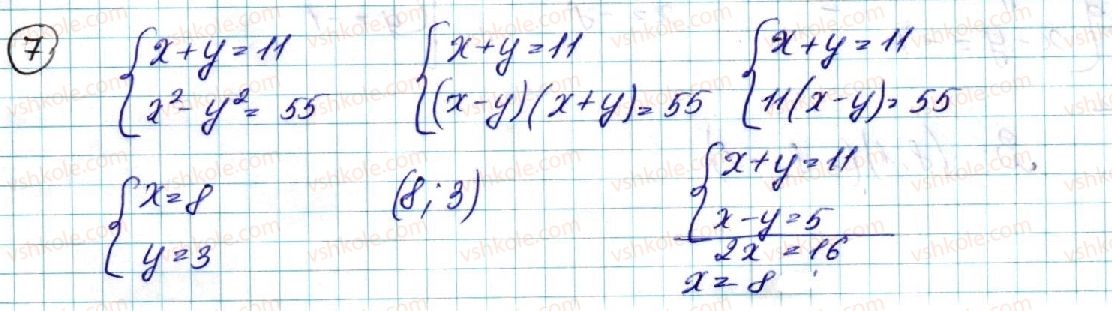 7
{ x+y=11
x²-y²=55
{ x+y=11
(x-y)(x+y)=55
{ x+y=11
11(x-y)=55
{ x+y=11
x-y=5
2x =16
x=8
{ x=8
y=3
(8;3)
vshkole.com